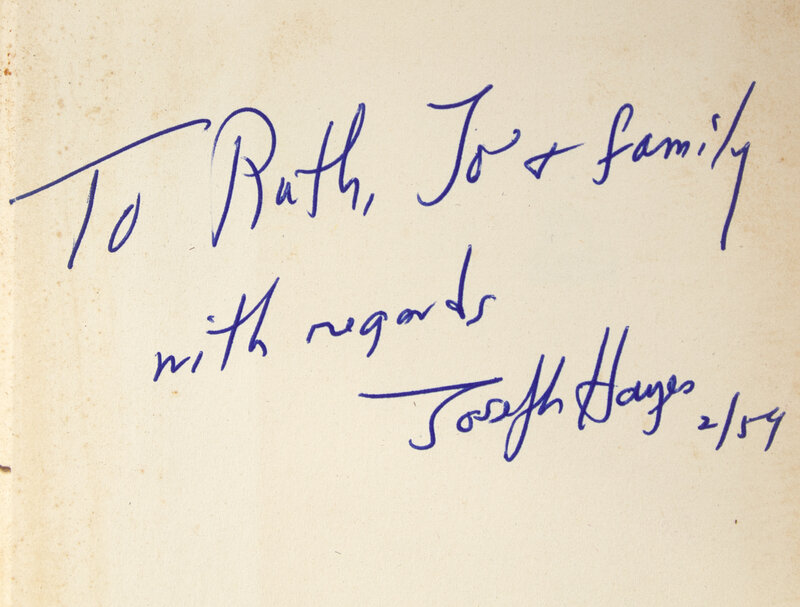 To Ruth, Jo + family
with regards
Joseph Hayes 2/54